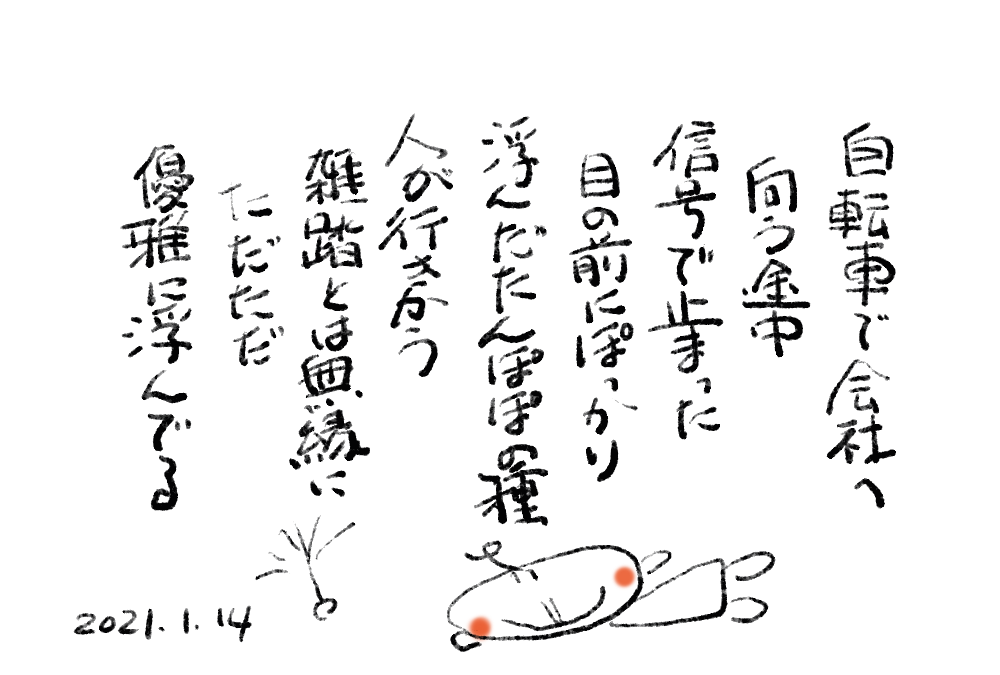 自転車で会社へ
向う途中
信号で止まった
目の前にぽっかり
浮んだたんぽぽの種
人が行きかう
雑踏とは無縁に
ただただ
優雅に浮んでる
2021.1.14